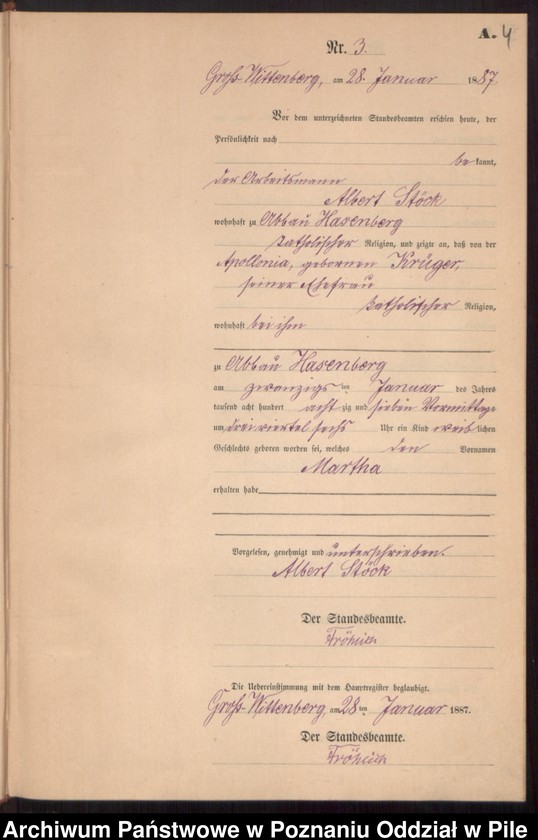 A. 4
Nr. 3.
Groß Wittenberg, am 28. Januar 1887
Vor dem unterzeichneten Standesbeamten erschien heute, der
Persönlichkeit nach
bekannt,
der Arbeitsmann
Albert Stöck
wohnhaft zu Abbau Hasenberg
katholischer Religion, und zeigte an, daß von der
Apollonia, gebornen Krüger,
seiner Ehefrau
katholischer Religion,
wohnhaft bei ihm
zu Abbau Hasenberg
am zwanzigsten Januar des Jahres
tausend acht hundert achtzig und sieben Vormittags
um dreiviertel sechs Uhr ein Kind weiblichen
Geschlechts geboren worden sei, welches den Vornamen
Martha
erhalten habe
Vorgelesen, genehmigt und unterschrieben.
Albert Stöck
Der Standesbeamte.
Fröhlich
Die Uebereinstimmung mit dem Hauptregister beglaubigt.
Groß-Wittenberg, am 28ten Januar 1887.
Der Standesbeamte.
Fröhlich
Archiwum Państwowe w Poznaniu Oddział w Pile